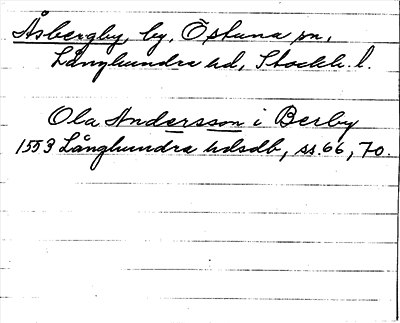 Åsbergby, by, Östuna sn,
Långhundra hd, Stockh. l.
Ola Andersson i Berby
1553 Långhundra hdsdb, ss. 66, 70.